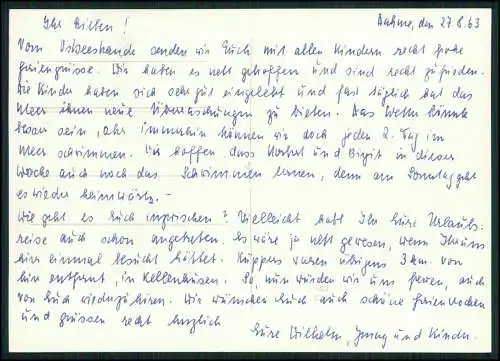 Dahme, den 27.8.63
Ihr Lieben!
Vom Ostseestrande senden wir Euch mit allen Kindern recht frohe
Feriengrüsse. Wir haben es nett getroffen und sind recht zufrieden.
Die Kinder haben sich sehr gut eingelebt und fast täglich hat das
Meer ihnen neue Überraschungen zu bieten. Das Wetter könnte
besser sein, aber immerhin können wir doch jeden 2. Tag im
Meer schwimmen. Wir hoffen, dass Norbert und Birgit in dieser
Woche auch noch das Schwimmen lernen, denn am Sonntag geht
es wieder heimwärts. -
Wie geht es Euch inzwischen? Vielleicht habt Ihr Eure Urlaubs-
reise auch schon angetreten. Es wäre ja nett gewesen, wenn Ihr uns
hier einmal besucht hättet. Küppers waren übrigens 3 km von
hier entfernt, in Kellenhusen. So, nun würden wir uns freuen, auch
von Euch wieder zu hören. Wir wünschen Euch auch schöne Ferienwochen
und grüssen recht herzlich
Eure Wilhelm, und Kinder.